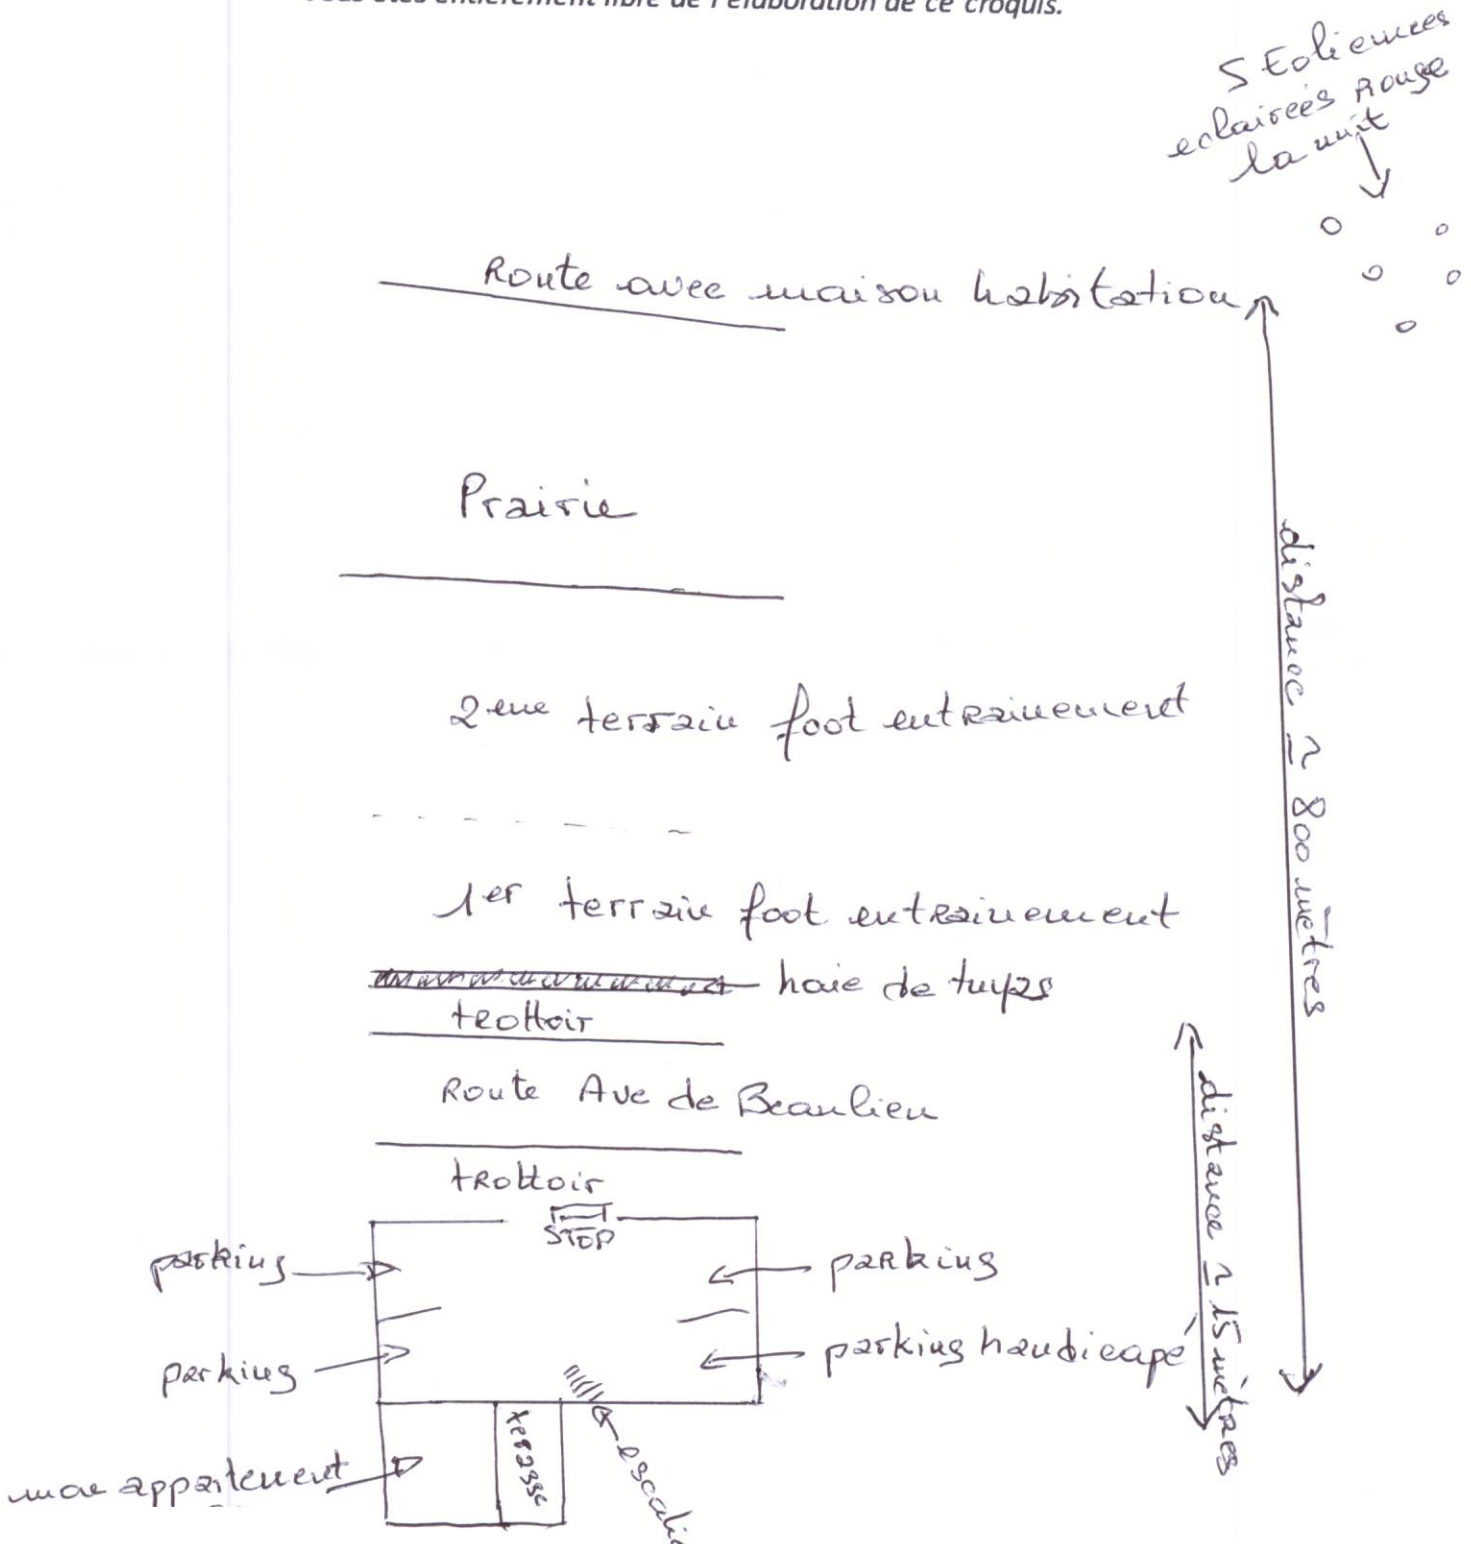 entièrement libre de l'élaboration de ce croquis.
5 Eoliennes
eclairées Rouge
la nuit
Route avec maison habitation
Prairie
distance ≃ 800 mètres
2eme terrain foot entrainement
1er terrain foot entrainement
haie de tuyas
trottoir
Route Ave de Beaulieu
distance ≃ 15 mètres
trottoir
STOP
parking
parking
parking
parking handicapé
terasse
escalie
mon appartement